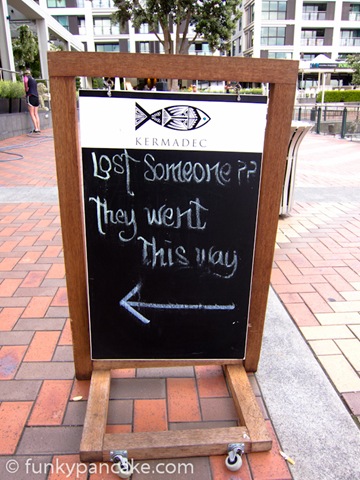 KERMADEC
Lost Someone??
They went
This way
© funkypancake.com